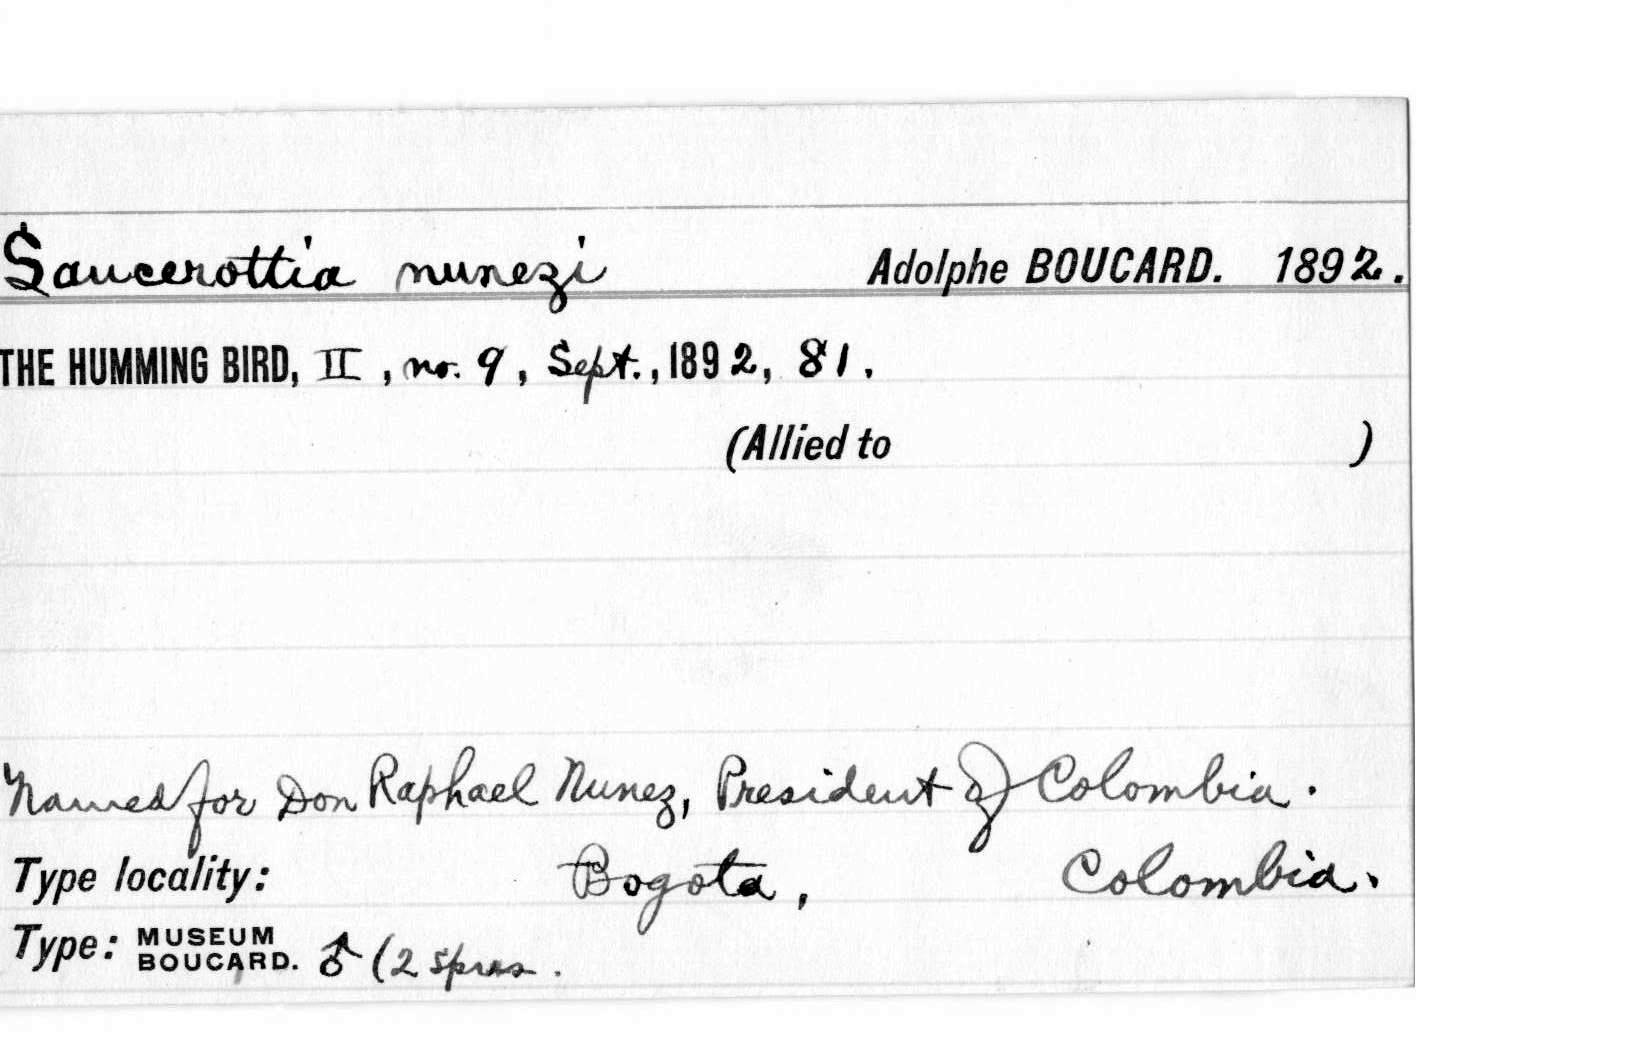 Saucerottia nunezi Adolphe BOUCARD. 1892.
THE HUMMING BIRD, II, no. 9, Sept., 1892, 81.
(Allied to )
Named for Don Raphael Nunez, President of Colombia.
Type locality: Bogota, Colombia.
Type: MUSEUM BOUCARD. ♂ (2 spms.